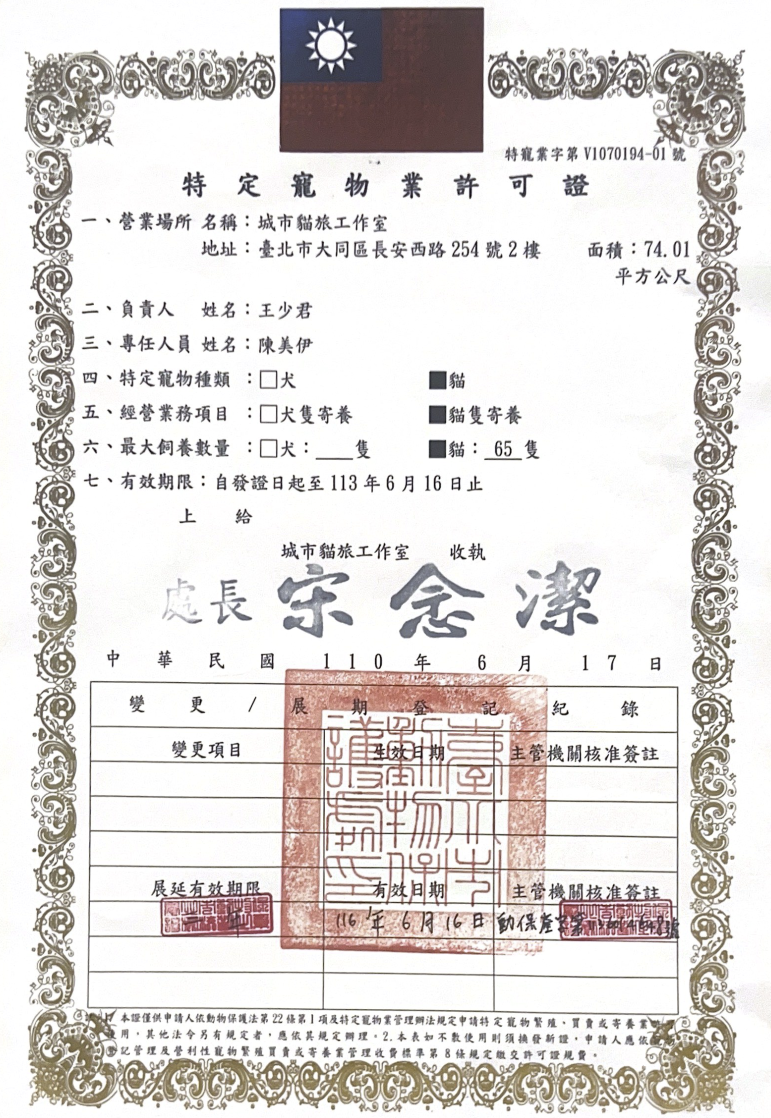 特寵業字第 V1070194-01 號
特定寵物業許可證
一、營業場所 名稱：城市貓旅工作室
地址：臺北市大同區長安西路 254 號 2 樓 面積：74.01
平方公尺
二、負責人 姓名：王少君
三、專任人員 姓名：陳美伊
四、特定寵物種類 ：□犬 ■貓
五、經營業務項目 ：□犬隻寄養 ■貓隻寄養
六、最大飼養數量 ：□犬：____隻 ■貓： 65 隻
七、有效期限：自發證日起至 113 年 6 月 16 日止
上 給
城市貓旅工作室 收執
處長 宋念潔
中華民國 110 年 6 月 17 日
變更/展期登記紀錄
變更項目 生效日期 主管機關核准簽註
臺北市動物保護處印
展延有效期限 有效日期 主管機關核准簽註
三年 116 年 6 月 16 日 動保產字第
本證僅供申請人依動物保護法第 22 條第 1 項及特定寵物業管理辦法規定申請特定寵物繁殖、買賣或寄養業
使用，其他法令另有規定者，應依其規定辦理。2.本表如不敷使用則須換發新證，申請人應依
登記管理及營利性寵物繁殖買賣或寄養業管理收費標準第 8 條規定繳交許可證規費。